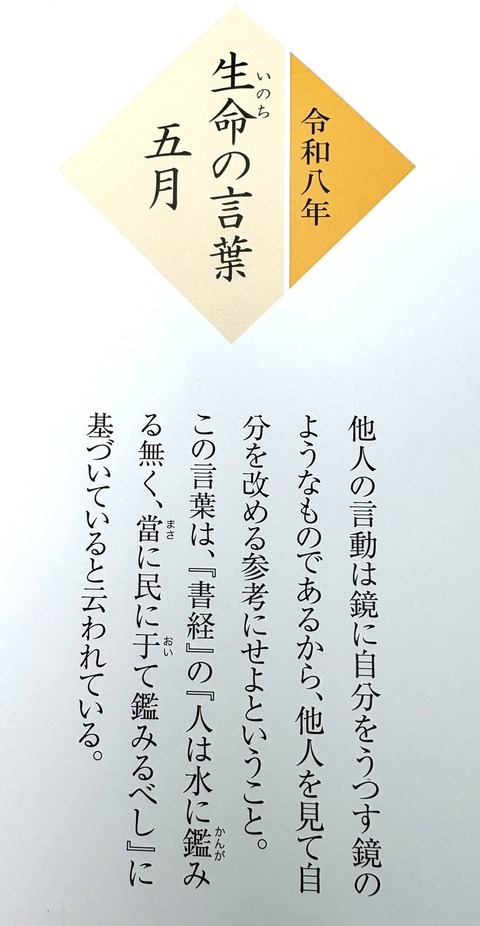 令和八年
生命の言葉
いのち
五月
他人の言動は鏡に自分をうつす鏡の
ようなものであるから、他人を見て自
分を改める参考にせよということ。
この言葉は、『書経』の『人は水に鑑み
かんが
る無く、當に民に于て鑑みるべし』に
まさ
おい
基づいていると云われている。